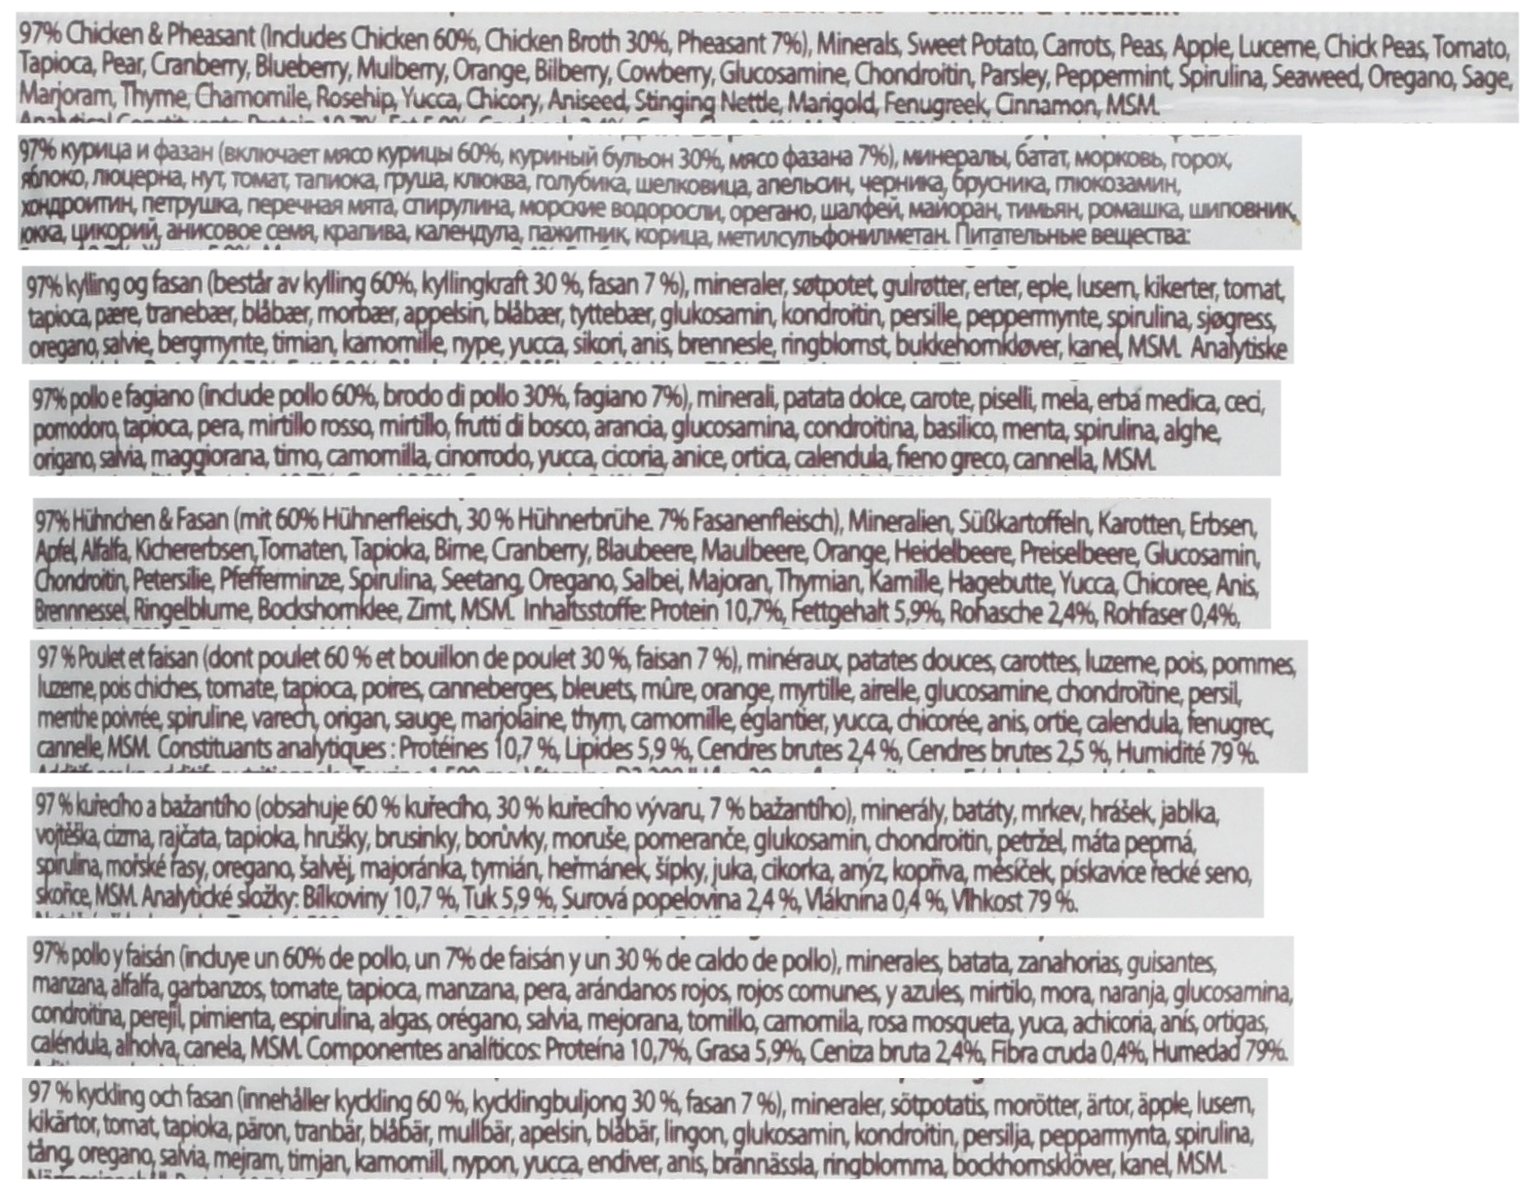 97% Chicken & Pheasant (Includes Chicken 60%, Chicken Broth 30%, Pheasant 7%), Minerals, Sweet Potato, Carrots, Peas, Apple, Lucerne, Chick Peas, Tomato,
Tapioca, Pear, Cranberry, Blueberry, Mulberry, Orange, Bilberry, Cowberry, Glucosamine, Chondroitin, Parsley, Peppermint, Spirulina, Seaweed, Oregano, Sage,
Marjoram, Thyme, Chamomile, Rosehip, Yucca, Chicory, Aniseed, Stinging Nettle, Marigold, Fenugreek, Cinnamon, MSM.
97% курица и фазан (включает мясо курицы 60%, куриный бульон 30%, мясо фазана 7%), минералы, батат, морковь, горох,
яблоко, люцерна, нут, томат, тапиока, груша, клюква, голубика, шелковица, апельсин, черника, брусника, глюкозамин,
хондроитин, петрушка, перечная мята, спирулина, морские водоросли, орегано, шалфей, майоран, тимьян, ромашка, шиповник,
юкка, цикорий, анисовое семя, крапива, календула, пажитник, корица, метилсульфонилметан. Питательные вещества:
97% kylling og fasan (består av kylling 60%, kyllingkraft 30 %, fasan 7 %), mineraler, søtpotet, gulrøtter, erter, eple, lusern, kikerter, tomat,
tapioca, pære, tranebær, blåbær, morbær, appelsin, blåbær, tyttebær, glukosamin, kondroitin, persille, peppermynte, spirulina, sjøgress,
oregano, salvie, bergmynte, timian, kamomille, nype, yucca, sikori, anis, brennesle, ringblomst, bukkehornkløver, kanel, MSM. Analytiske
97% pollo e fagiano (include pollo 60%, brodo di pollo 30%, fagiano 7%), minerali, patata dolce, carote, piselli, mela, erba medica, ceci,
pomodoro, tapioca, pera, mirtillo rosso, mirtillo, frutti di bosco, arancia, glucosamina, condroitina, basilico, menta, spirulina, alghe,
origano, salvia, maggiorana, timo, camomilla, cinorrodo, yucca, cicoria, anice, ortica, calendula, fieno greco, cannella, MSM.
97% Hühnchen & Fasan (mit 60% Hühnerfleisch, 30 % Hühnerbrühe. 7% Fasanenfleisch), Mineralien, Süßkartoffeln, Karotten, Erbsen,
Apfel, Alfalfa, Kichererbsen, Tomaten, Tapioka, Birne, Cranberry, Blaubeere, Maulbeere, Orange, Heidelbeere, Preiselbeere, Glucosamin,
Chondroitin, Petersilie, Pfefferminze, Spirulina, Seetang, Oregano, Salbei, Majoran, Thymian, Kamille, Hagebutte, Yucca, Chicoree, Anis,
Brennnessel, Ringelblume, Bockshornklee, Zimt, MSM. Inhaltsstoffe: Protein 10,7%, Fettgehalt 5,9%, Rohasche 2,4%, Rohfaser 0,4%,
97 % Poulet et faisan (dont poulet 60 % et bouillon de poulet 30 %, faisan 7 %), minéraux, patates douces, carottes, luzerne, pois, pommes,
luzerne, pois chiches, tomate, tapioca, poires, canneberges, bleuets, mûre, orange, myrtille, airelle, glucosamine, chondroïtine, persil,
menthe poivrée, spiruline, varech, origan, sauge, marjolaine, thym, camomille, églantier, yucca, chicorée, anis, ortie, calendula, fenugrec,
cannelle, MSM. Constituants analytiques : Protéines 10,7 %, Lipides 5,9 %, Cendres brutes 2,4 %, Cendres brutes 2,5 %, Humidité 79 %.
97 % kuřecího a bažantího (obsahuje 60 % kuřecího, 30 % kuřecího vývaru, 7 % bažantího), minerály, batáty, mrkev, hrášek, jablka,
vojtěška, cizrna, rajčata, tapioka, hrušky, brusinky, borůvky, moruše, pomeranče, glukosamin, chondroitin, petržel, máta peprná,
spirulina, mořské řasy, oregano, šalvěj, majoránka, tymián, heřmánek, šípky, juka, cikorka, anýz, kopřiva, měsíček, pískavice řecké seno,
skořice, MSM. Analytické složky: Bílkoviny 10,7 %, Tuk 5,9 %, Surová popelovina 2,4 %, Vláknina 0,4 %, Vlhkost 79 %.
97% pollo y faisán (incluye un 60% de pollo, un 7% de faisán y un 30 % de caldo de pollo), minerales, batata, zanahorias, guisantes,
manzana, alfalfa, garbanzos, tomate, tapioca, manzana, pera, arándanos rojos, rojos comunes, y azules, mirtilo, mora, naranja, glucosamina,
condroitina, perejil, pimienta, espirulina, algas, orégano, salvia, mejorana, tomillo, camomila, rosa mosqueta, yuca, achicoria, anís, ortigas,
caléndula, alholva, canela, MSM. Componentes analíticos: Proteína 10,7%, Grasa 5,9%, Ceniza bruta 2,4%, Fibra cruda 0,4%, Humedad 79%.
97 % kyckling och fasan (innehåller kyckling 60 %, kycklingbuljong 30 %, fasan 7 %), mineraler, sötpotatis, morötter, ärtor, äpple, lusern,
kikärtor, tomat, tapioka, päron, tranbär, blåbär, mullbär, apelsin, blåbär, lingon, glukosamin, kondroitin, persilja, pepparmynta, spirulina,
tång, oregano, salvia, mejram, timjan, kamomill, nypon, yucca, endiver, anis, brännässla, ringblomma, bockhornsklöver, kanel, MSM.